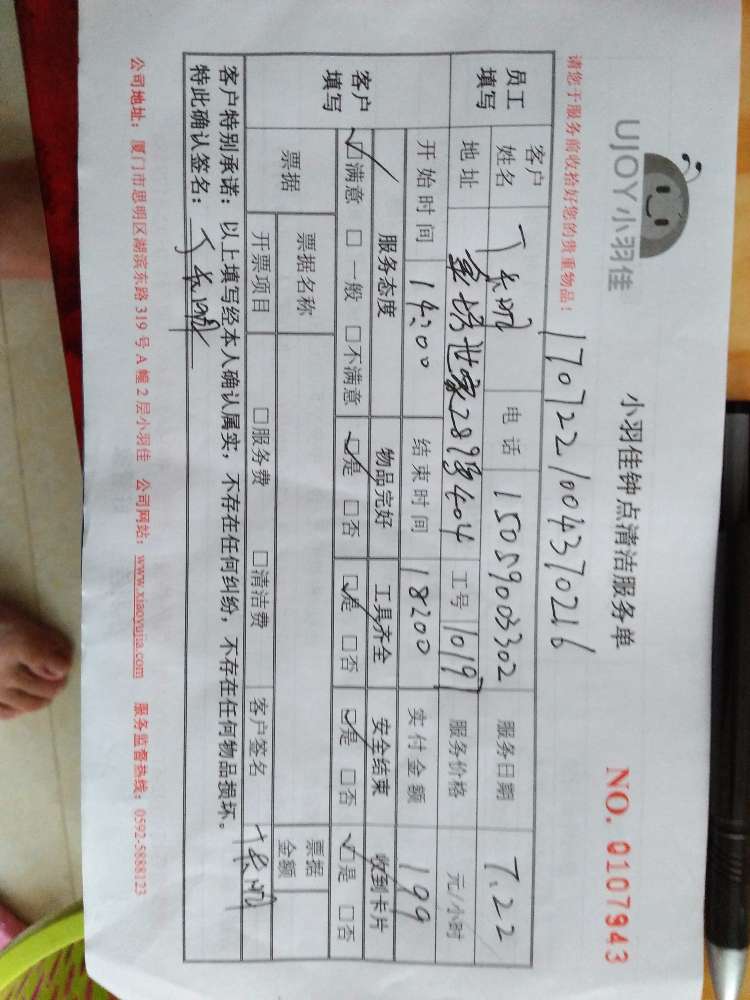 UJOY小羽佳
小羽佳钟点清洁服务单
NO. 0107943
请您于服务前收拾好您的贵重物品！
1707221004370216
员工填写
客户姓名 丁 电话 15059003302 服务日期 7.22
地址 世家289号404 工号 10197 服务价格 元/小时
开始时间 14:00 结束时间 18:00 实付金额 199
客户填写
服务态度 物品完好 工具齐全 安全结束 收到卡片
☑满意 □一般 □不满意 ☑是 □否 ☑是 □否 ☑是 □否 ☑是 □否
票据 票据名称 票据金额
开票项目 □服务费 □清洁费 客户签名 丁
客户特别承诺：以上填写经本人确认属实，不存在任何纠纷，不存在任何物品损坏。
特此确认签名：丁
公司地址：厦门市思明区湖滨东路319号A幢2层小羽佳 公司网站：www.xiaoyujia.com 服务监督热线：0592-5888123